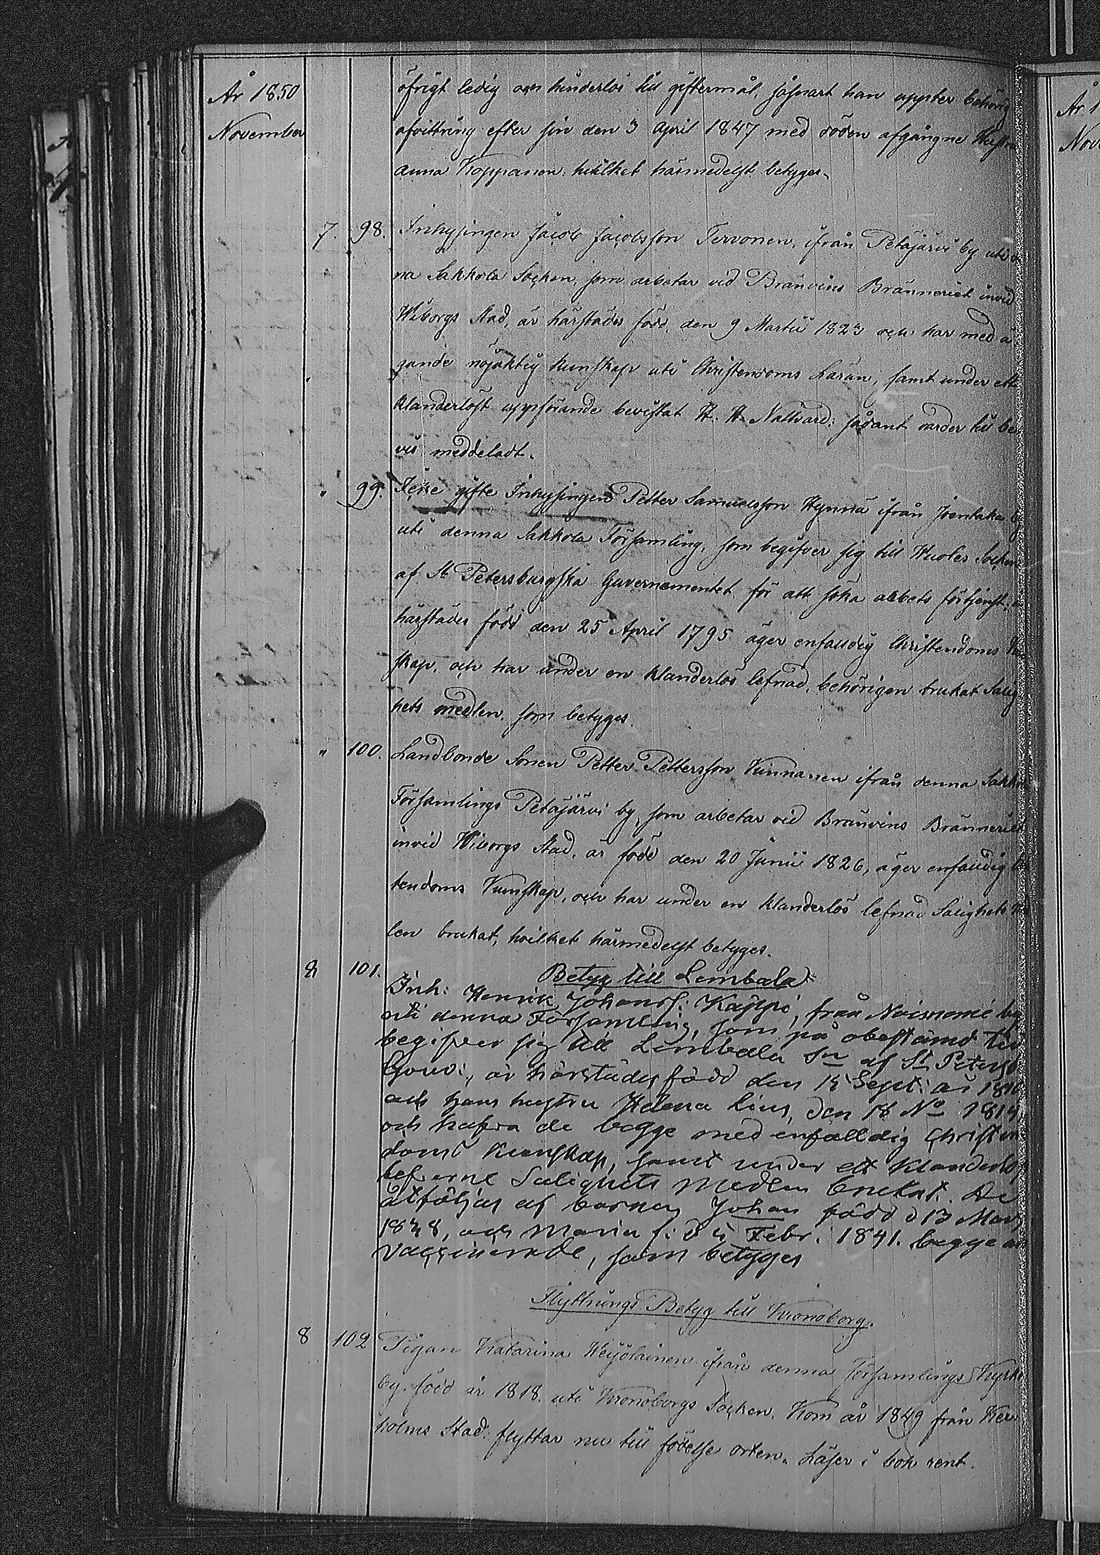 År 1850
November
öfrigt ledig och hinderlös till giftermål, såsnart han uppster behörig
afvittring efter sin den 3 April 1847 med döden afgångne Hustru
Anna Kopparen, hvilket härmedelst betygas.
7. 98. Inhysingen Jacob Jacobsson Tervonen, ifrån Petäjärvi by uti den
na Sakkola Socken, som arbetar vid Bränvins Bränneriet invid
Wiborgs Stad, är härstädes född den 9 Martii 1823 och har med ä
gande nöjaktig kunskap uti Christendoms Läran, samt under ett
klanderlöst uppförande bevistat H. H. Nattvard; sådant varder till be
vis meddeladt.
" 99. Icke gifte Inhysingen Petter Samuelsson Hynnä ifrån Joentaka by
uti denna Sakkola Församling, som begifver sig till Socken
af St Petersburgska Guvernementet för att söka arbets förtjenst, är
härstädes född den 25 April 1795 äger enfaldig Christendoms Kun
skap, och har under en klanderlös lefnad, behörigen brukat Salig
hets medlen, som betygas.
" 100. Landbonde Sonen Petter Pettersson Kinnanen ifrån denna Sakkola
Församlings Petäjärvi by, som arbetar vid Bränvins Bränneriet
invid Wiborgs Stad, är född den 20 Junii 1826, äger enfaldig
tendoms Kunskap, och har under en klanderlös lefnad Salighets
len brukat, hvilket härmedelst betygas.
Betyg till Lembala
8 101. Inh: Henrik Johanss: Käppi, från Noisniemi by
uti denna Församling, som på obestämd tid
begifver sig till Lembala Sn af St Petersb
Guv:, är härstädes född den 15 Sept: år
och hans hustru Helena Lius, den 18 No
och hafva de begge med enfalldig Christen
doms Kunskap, samt under ett klanderlös
lefverne Salighets Medlen brukat. De
åtföljas af barnen Johan född d 13 Mars
1838, och Maria f: d 5 Febr. 1841. begge är
vaccinerade, som betygas
Flyttnings Betyg till Kronoborg.
8 102 Pigan Katarina Weijolainen ifrån denna Församlings Kyrko
by, född år 1818 uti Kronoborgs Socken. Kom år 1849 från Kex
holms Stad, flyttar nu till födelse orten. Läser i bok rent.
År 1
Nov